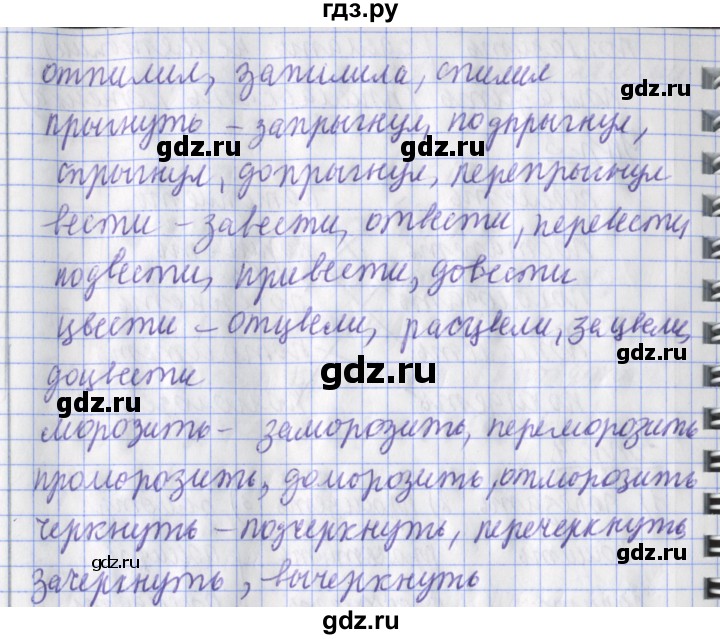 гдз.ру
отпилил, запилила, спилил
gdz.ru
прыгнуть - запрыгнул, подпрыгнул,
gdz.ru gdz.ru
спрыгнул, допрыгнул, перепрыгнул
вести - завести, отвести, перевести,
подвести, привести, довести
цвести - отцвели, расцвели, зацвели,
gdz.ru
доцвести
gdz.ru
gdz.ru
морозить - заморозить, переморозить
проморозить, доморозить, отморозить
gdz.ru
черкнуть - подчеркнуть, перечеркнуть
gdz.ru
gdz.ru
зачеркнуть, вычеркнуть
gdz.ru